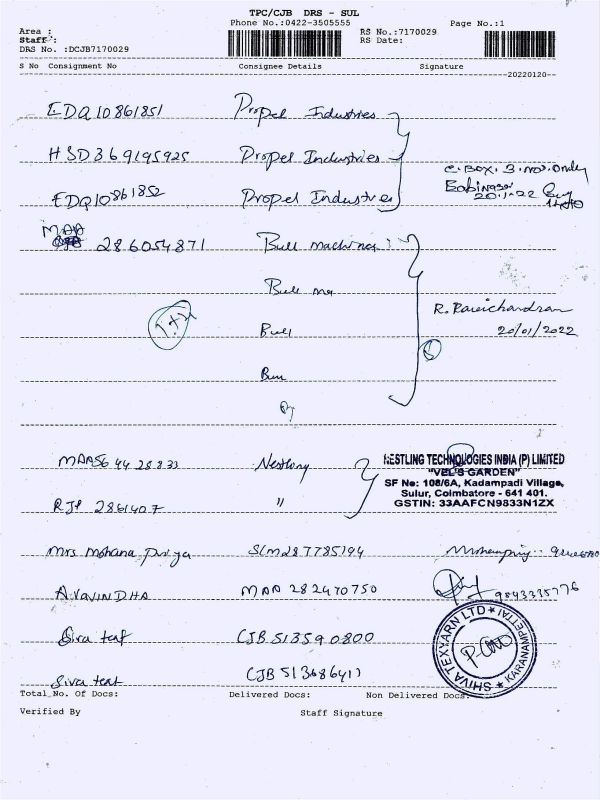 TPC/CJB DRS - SUL
Phone No.:0422-3505555
Page No.:1
Area :
Staff :
RS No.:7170029
RS Date:
DRS No. :DCJB7170029
S No Consignment No Consignee Details Signature
20220120
EDQ10861851 Propel Industries
HSD369195925 Propel Industries
C. Box. 3. nos. only
EDQ10861852 Propel Industries
20.1.22
MAA 286054871 Bull machines
Bull ma
R. Ravichandran
1+4 Bull
20/01/2022
5
Bull
NESTLING TECHNOLOGIES INDIA (P) LIMITED
"VEL'S GARDEN"
MAA564428833 Nestling
SF No: 108/6A, Kadampadi Village,
Sulur, Coimbatore - 641 401.
GSTIN: 33AAFCN9833N1ZX
RJP 2861407 "
Mrs Mohana priya SLM287785194
ARAVINDHA MAA 282470750 9843335776
Siva text CJB 513590800
SHIVA TEXYARN LTD ★ KARANAMPETTAI ★
Siva text CJB 513686411
Total No. Of Docs: Delivered Docs: Non Delivered Docs:
Verified By Staff Signature